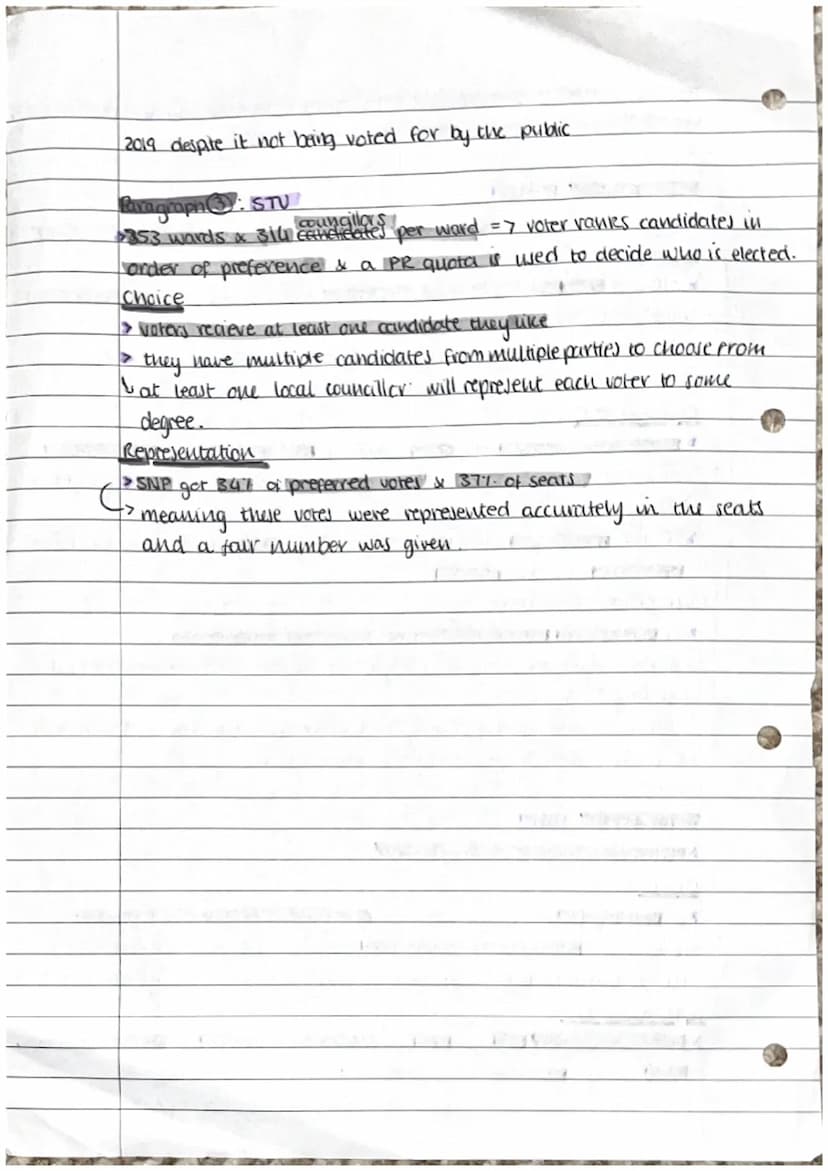 2019 despite it not being voted for by the public
Paragraph ③: STV
>353 wards & 3/4 councillors candidates per ward => voter ranks candidates in
order of preference & a PR quota is used to decide who is elected.
Choice
> voters recieve at least one candidate they like
> they have multiple candidates from multiple parties to choose from
↳ at least one local councillor will represent each voter to some
degree.
Representation
> SNP got 34% of preferred votes & 37% of seats
↳> meaning these votes were represented accurately in the seats
and a fair number was given.